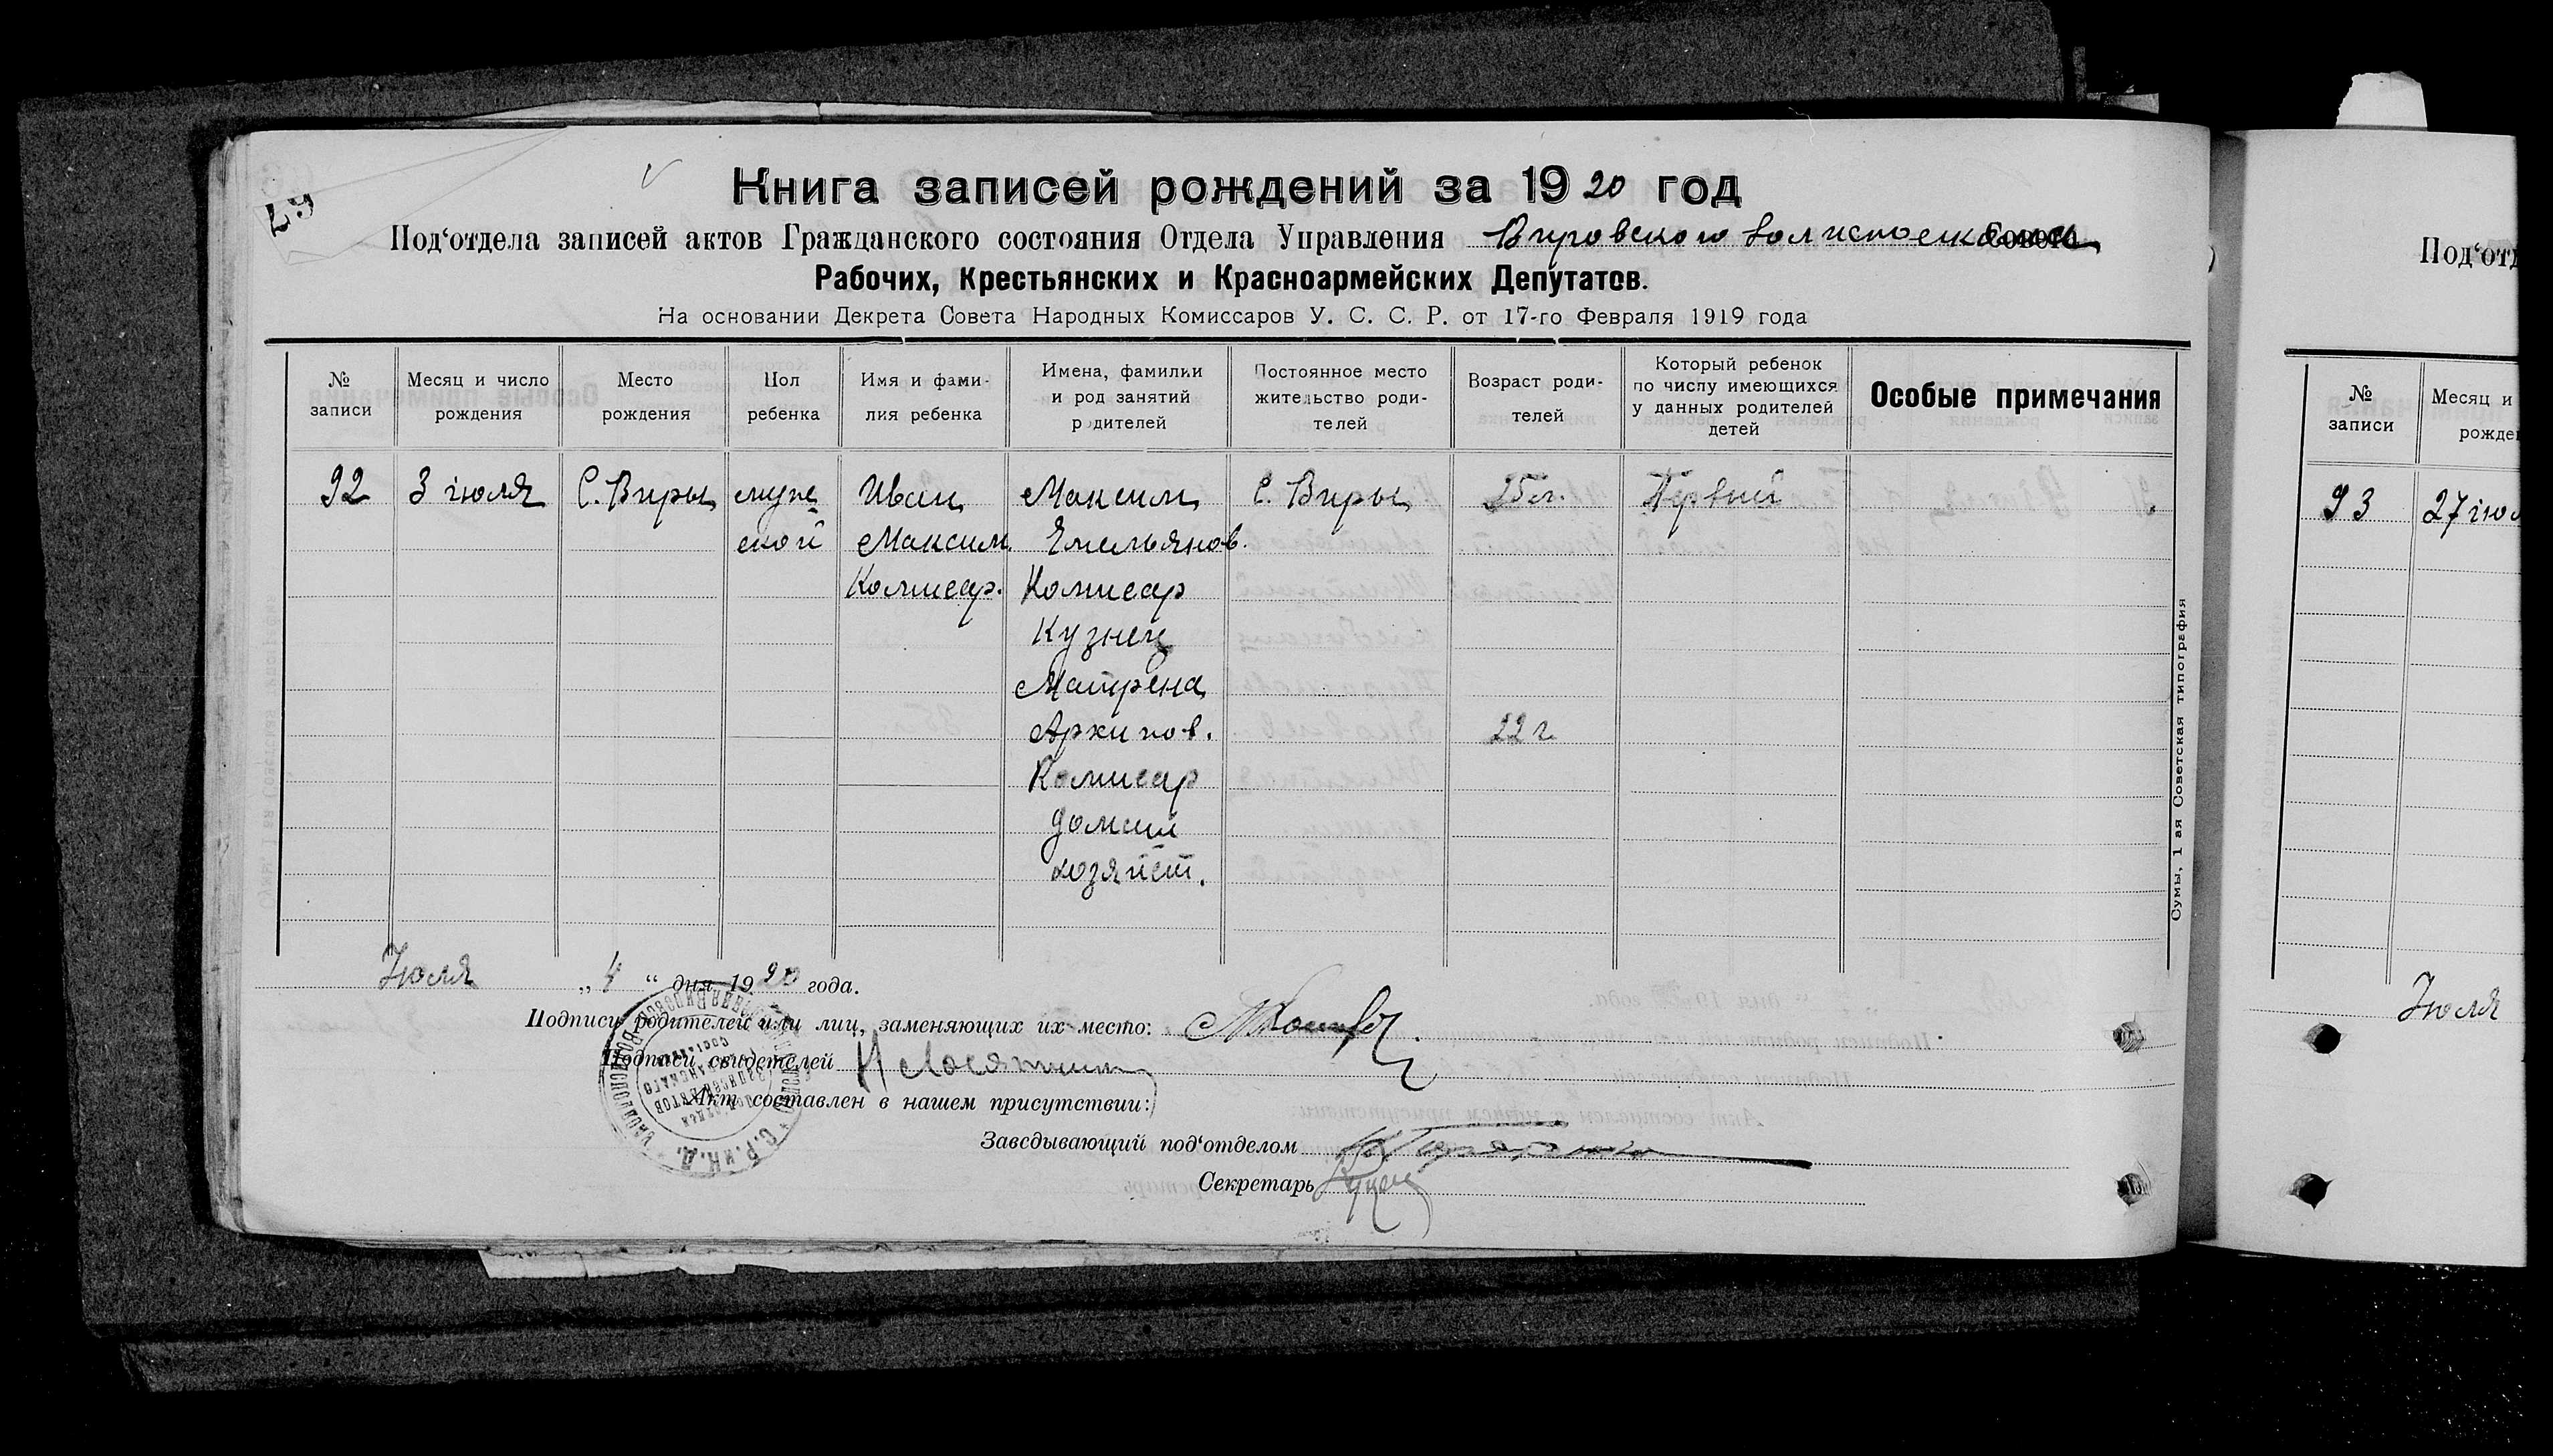 Книга записей рождений за 1920 год
Под‘отдела записей актов Гражданского состояния Отдела Управления Вировского волисполкома
Рабочих, Крестьянских и Красноармейских Депутатов.
На основании Декрета Совета Народных Комиссаров У. С. С. Р. от 17-го Февраля 1919 года
№ записи
Месяц и число рождения
Место рождения
Пол ребенка
Имя и фамилия ребенка
Имена, фамилии и род занятий родителей
Постоянное место жительство родителей
Возраст родителей
Который ребенок по числу имеющихся у данных родителей детей
Особые примечания
92 3 іюля С. Виры мужс Иван Максим С. Виры 25 л. Первый
ской Максим. Емельянов.
Комисар. Комисар
Кузнец
Матрена
Архипов. 22 г.
Комисар
домаш
хозяйст.
Июля „4“ дня 1920 года.
Подписи родителей или лиц, заменяющих их место:
Подписи свидетелей
Акт составлен в нашем присутствии:
Заведывающий под‘отделом
Секретарь
Сумы, 1 ая Советская типография
Под‘отд
№ записи
Месяц и
рожде
93 27 іюл
Июля